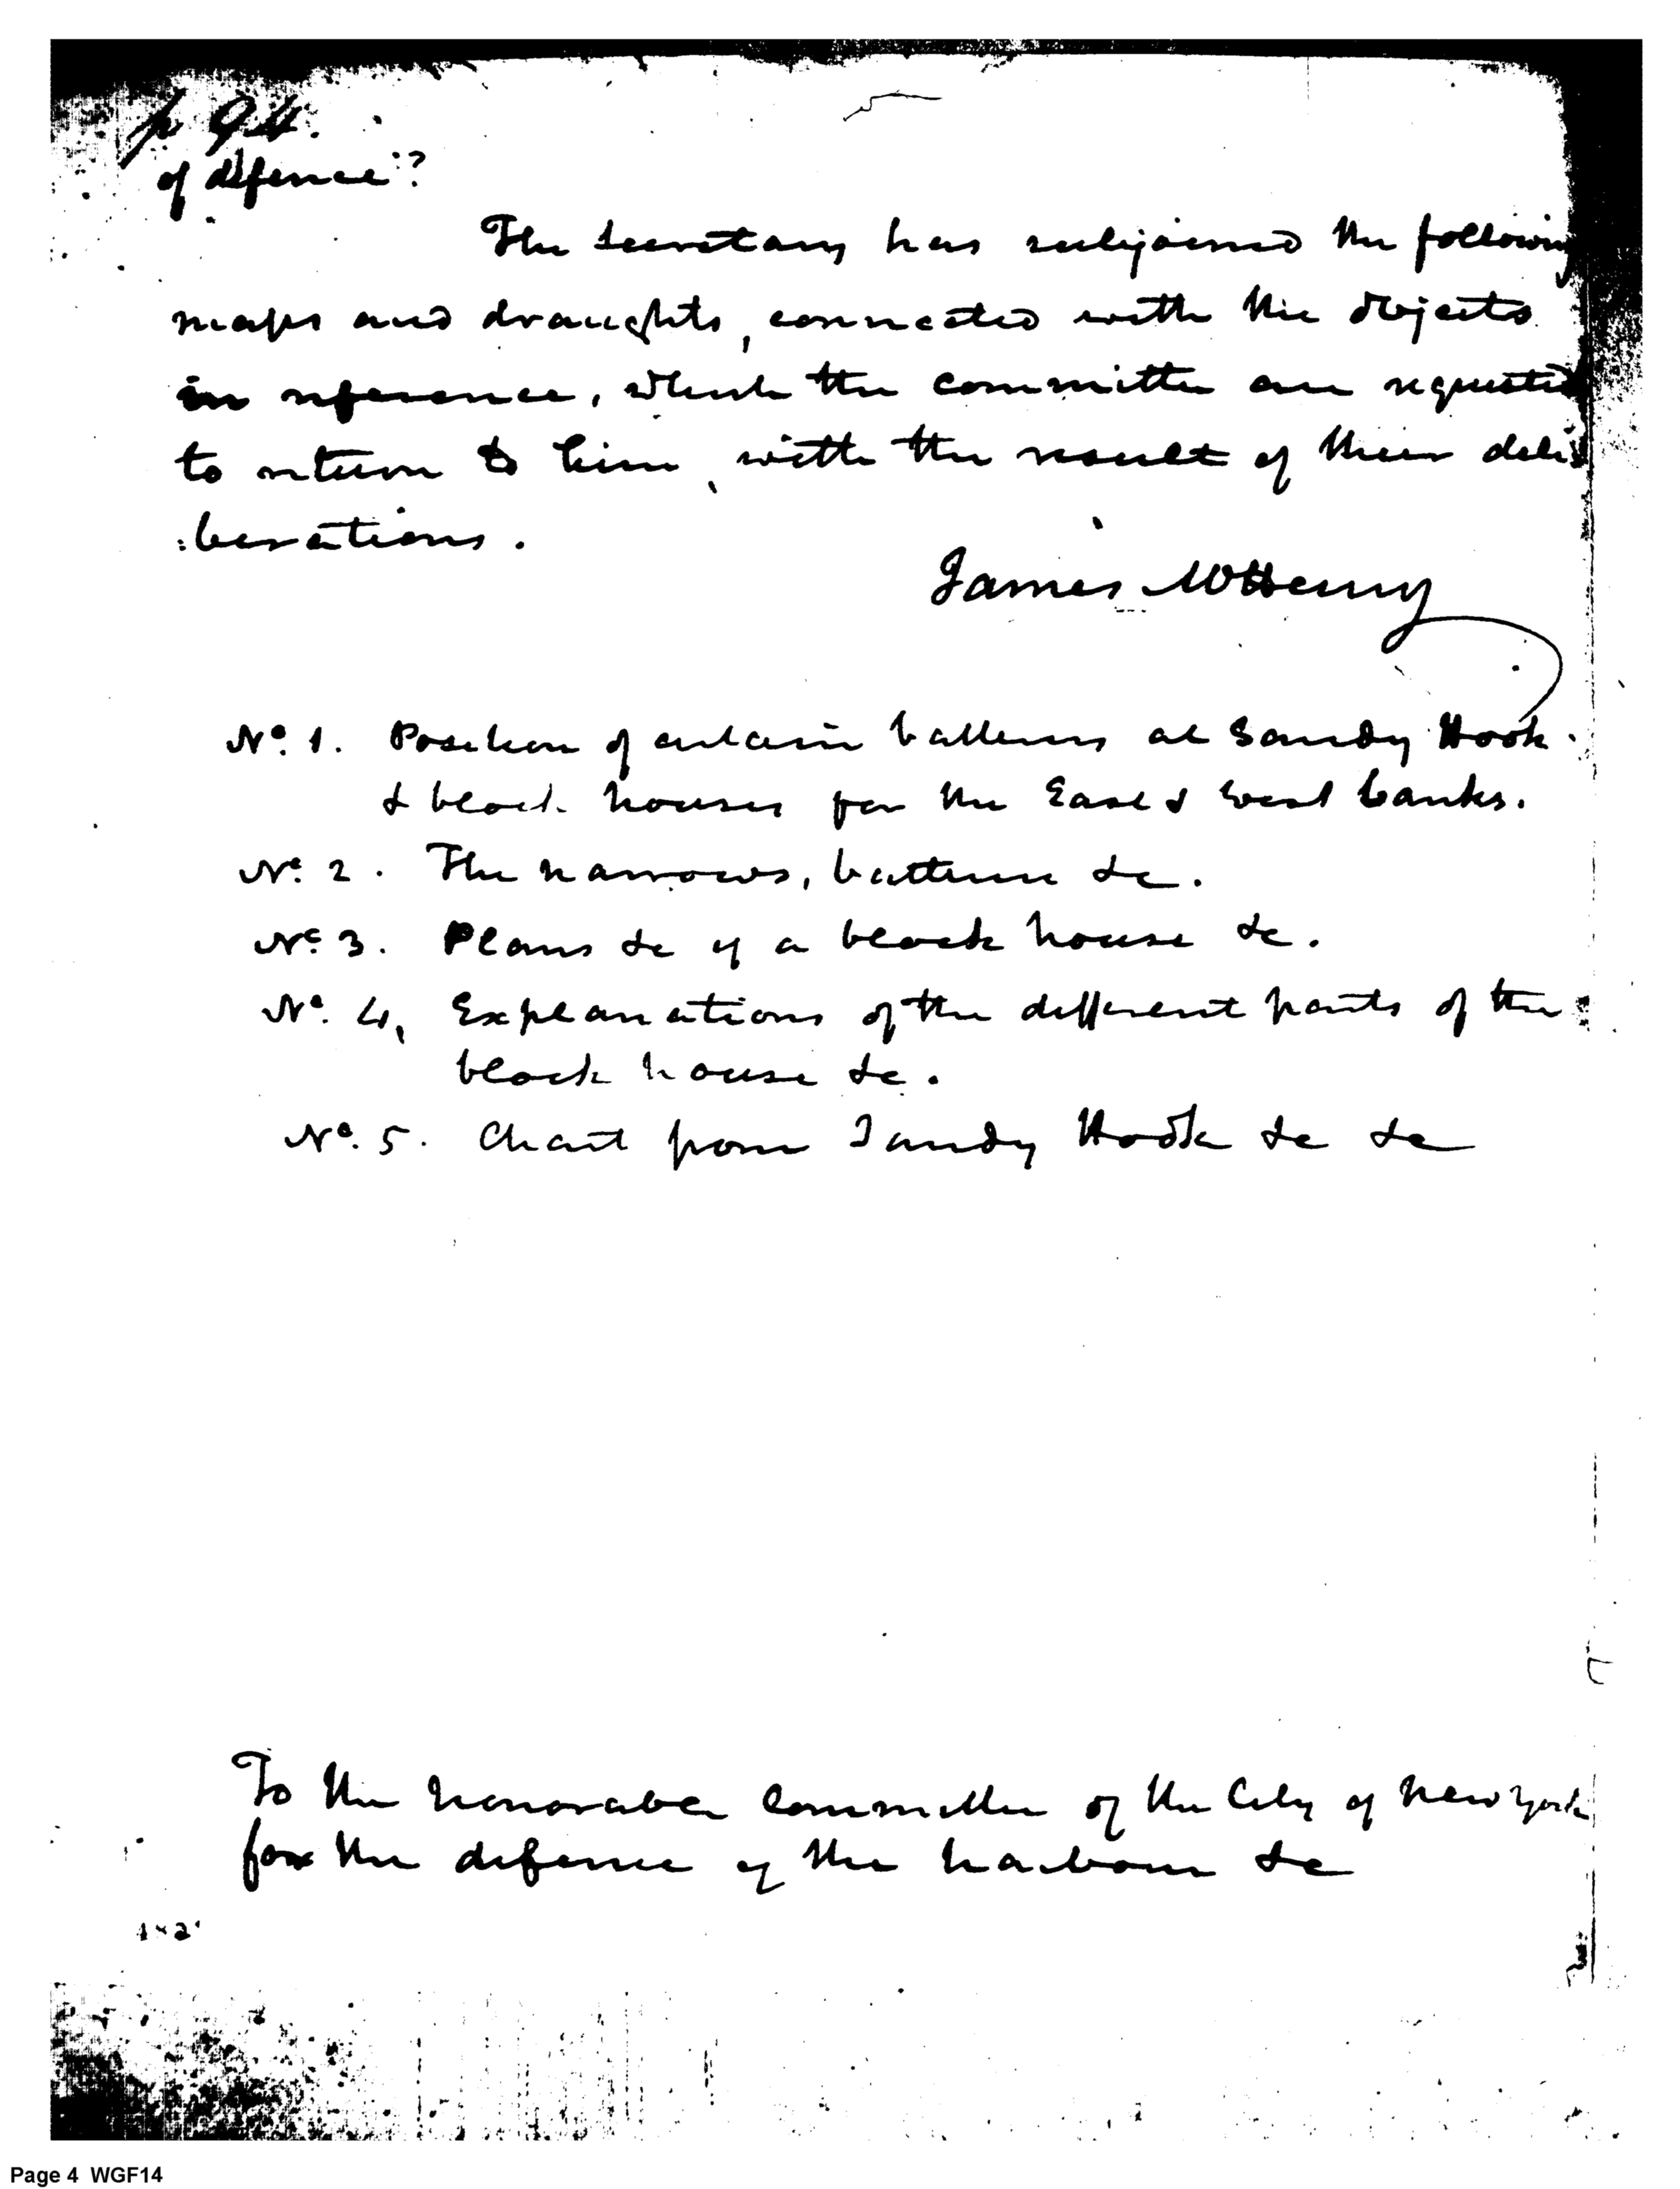 p 94.
of defence"?
The Secretary has subjoined the following
maps and draughts, connected with the objects
in reference, which the committee are requested
to return to him, with the result of their deli
:berations.
James McHenry
No. 1. Position of certain batteries at Sandy Hook.
& block houses for the East & West banks.
No. 2. The narrows, batteries &c.
No. 3. Plans &c of a block house &c.
No. 4, Explanations of the different parts of the
block house &c.
No. 5. Chart from Sandy Hook &c &c
To the honorable Committee of the City of New York
for the defence of the harbour &c
Page 4 WGF14